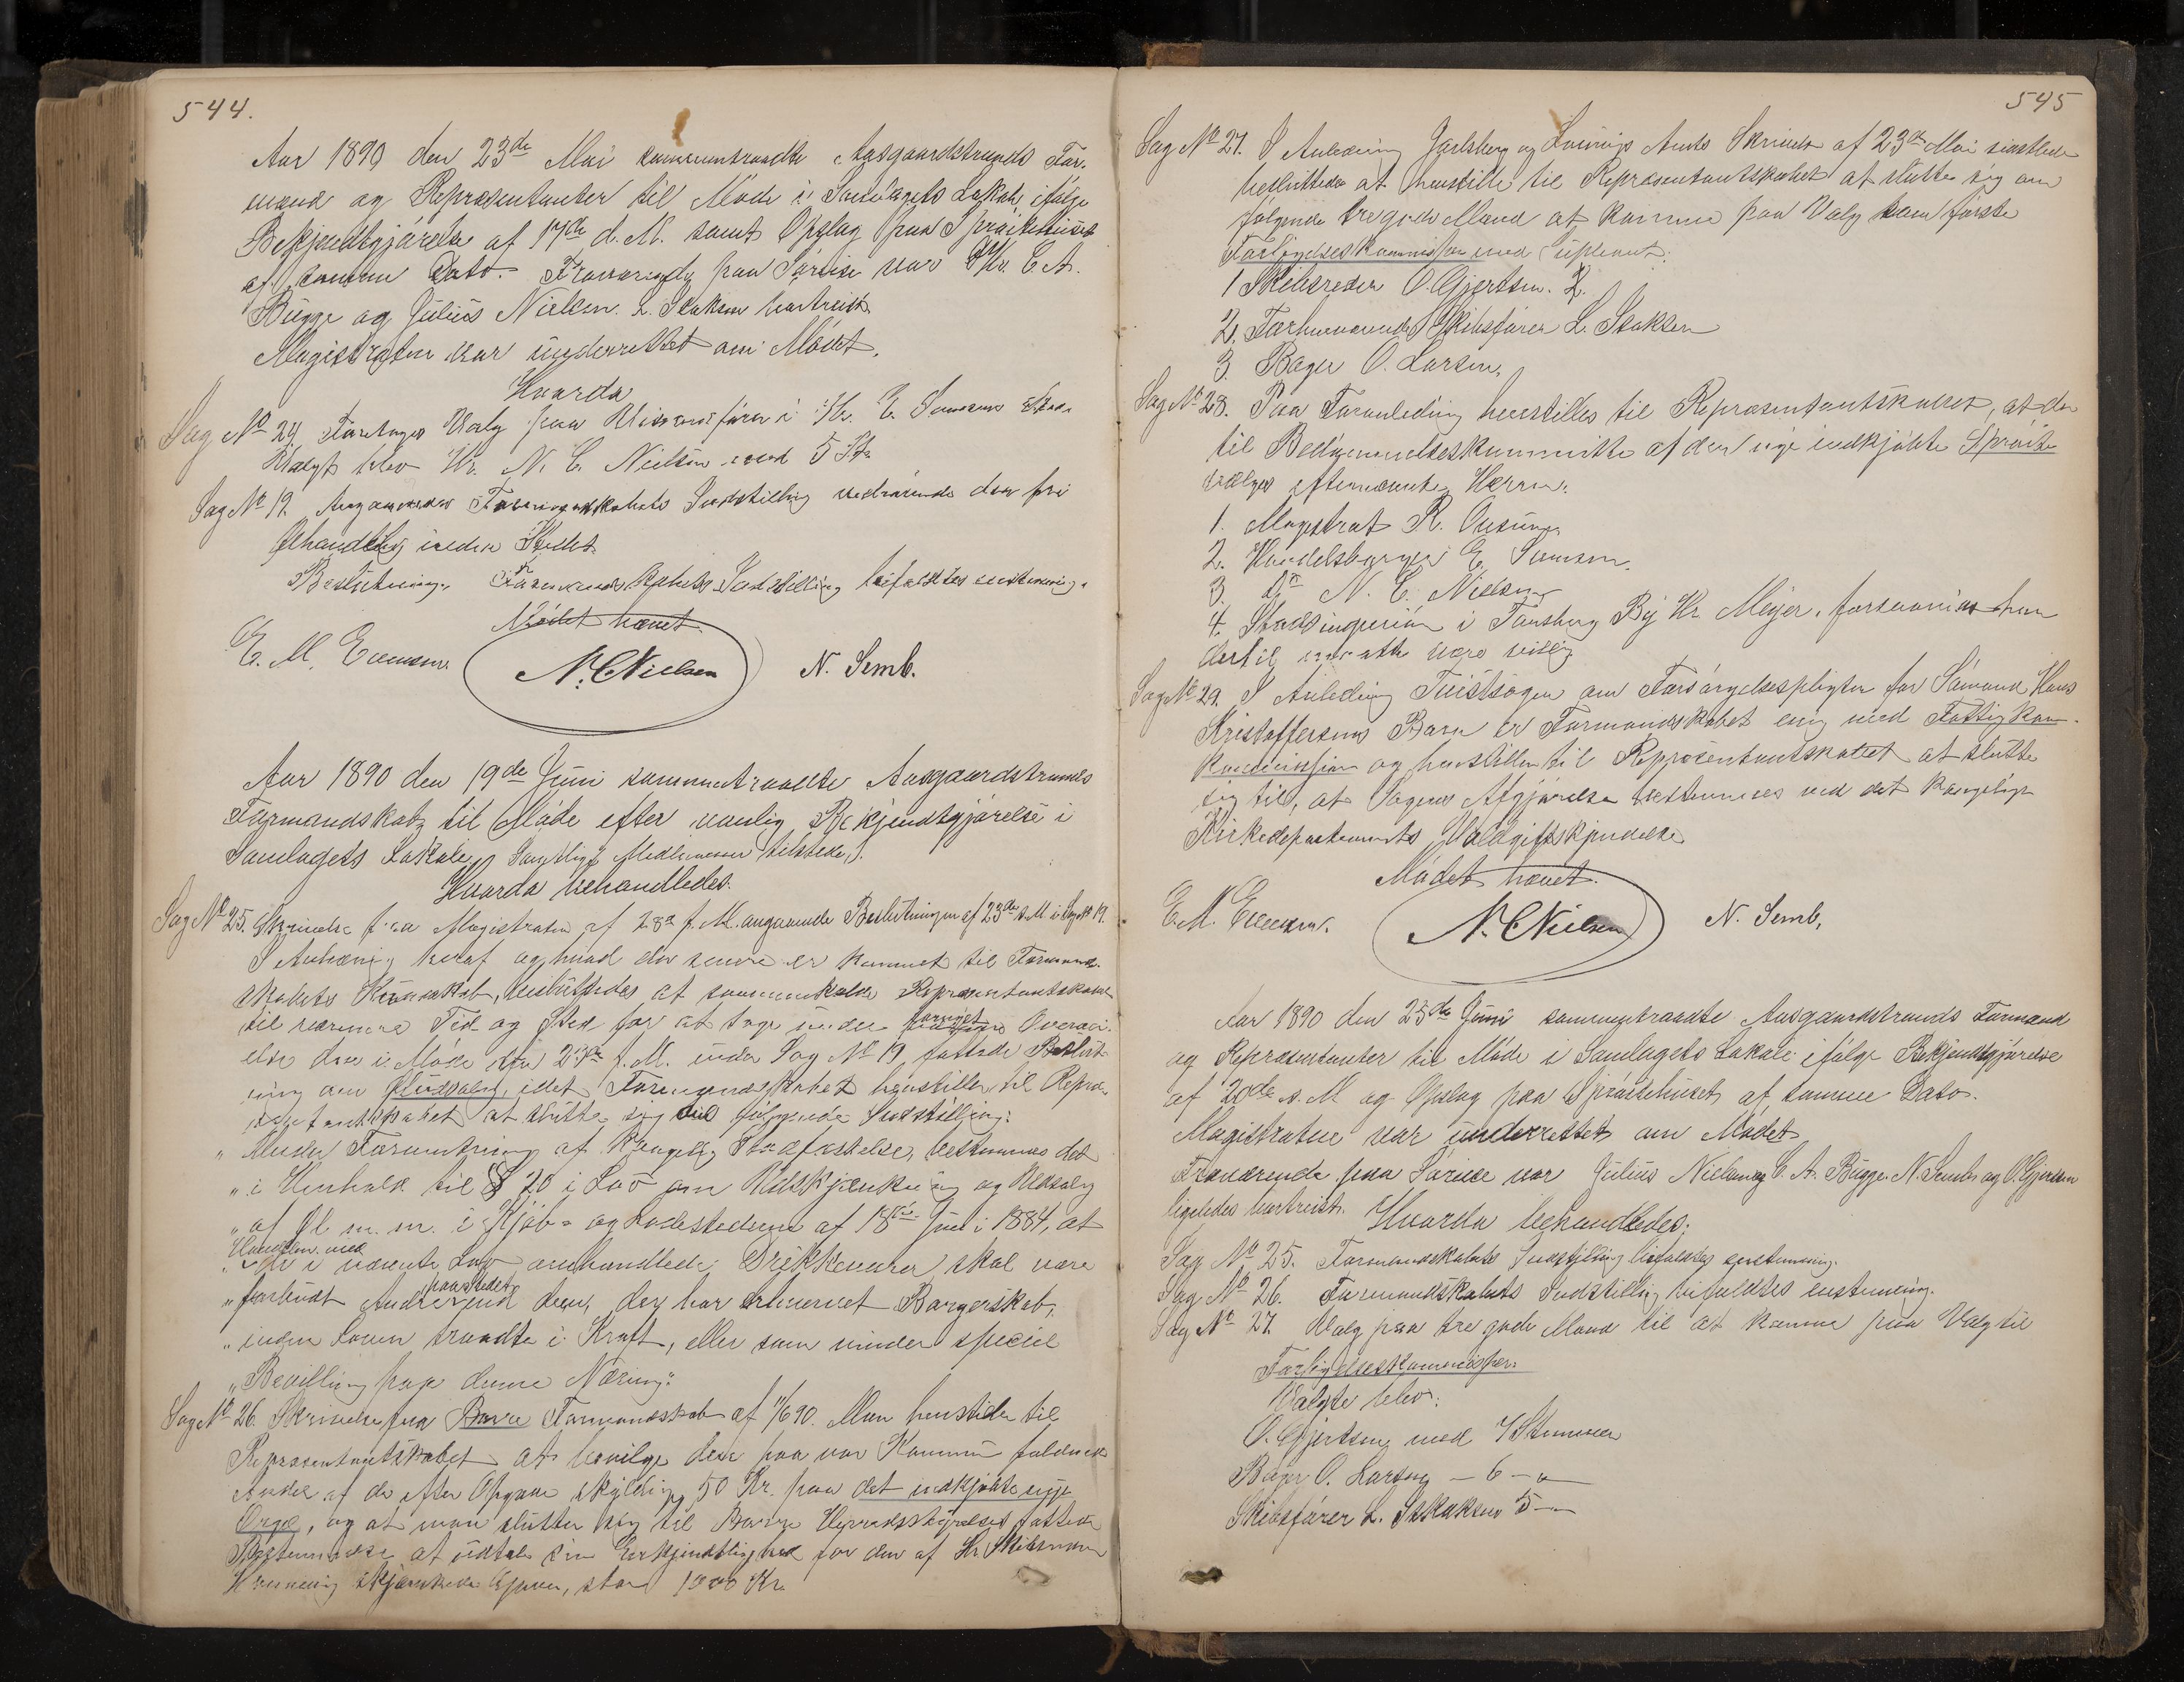 544.
Aar 1890 den 23de Mai sammentraadte Aasgaardstrands For-
mænd og Repræsentanter til Møde i Samlagets Lokale, ifølge
Bekjendtgjørelse af 17de d. M. samt Opslag paa Sprøitehuset
af samme Dato. Fraværende paa Søreise var Hr. C. A.
Bügge og Julius Nielsen. L. Isaksen bortreist.
Magistraten var underrettet om Mødet.
Hvorda
Sag No 24 Foretoges Valg paa Revisor i Hr. E. Sted.
Valgt blev Hr. N. C. Nielsen med 5 St.
Sag No 19. Angaaende Formandskabets Indstilling vedrørende den fri
Ølhandling inden Stedet
Beslutning. Formandskabets Indstilling bifaldtes enstemmig.
Mødet hævet
E. M. Evensen. N. C. Nielsen N. Semb.
Aar 1890 den 19de Juni sammentraadte Aasgaardstrands
Formandskab til Møde efter vanlig Bekjendtgjørelse i
Samlagets Lokale, Samtlige Medlemmer tilstede.
Hvorda behandledes.
Sag No 25. Skrivelse fra Magistraten af 28de f. M. angaaende Beslutningen af 23de s. M. i Sag No 19.
I Anledning heraf og hvad der senere er kommet til Formand-
skabets Kundskab, besluttedes at sammenkalde Repræsentantskabet
til nærmere Tid og Sted for at tage under fornyet Overvei-
else den i Møde den 23de f. M. under Sag No 19 fattede Beslut-
ning om Øludsalg, idet Formandskabet henstiller til Repræ-
sentantskabet at slutte sig til følgende Indstilling:
„ Under Forventning af Kongelig Stadfæstelse, bestemmes det
„ i Henhold til § 20 i Lov om Udskjænkning og Udsalg
„ af Øl m. m. i Kjøb- og Ladestederne af 18de Juni 1884, at
Handelen med
„ de i nævnte Lov omhandlede Drikkevarer skal være
paa Stedet
„ forbudt Andre end dem, der har erhvervet Borgerskab,
„ inden Loven traadte i Kraft, eller som under speciel
„ Bevilling paa denne Næring."
Sag No 26. Skrivelse fra Borre Formandskab af 11/6 90. Man henstiller til
Repræsentantskabet at bevilge den paa vor Kommune faldende
Andel af de efter Opgave skyldig 50 Kr. paa det indkjøbte nye
Orgel, og at man slutter sig til Borre Herredsstyrelses fattede
Bestemmelse at udtale sin Erkjendtlighed for den af Hr. Skibsreder
skjænkede Gave, stor 1000 Kr.
545
Sag No 27. I Anledning Jarlsberg og Laurvigs Amts Skrivelse af 23de Mai sidstleden
besluttedes at henstille til Repræsentantskabet at slutte sig om
følgende tre gode Mænd at komme paa Valg som første
Forligelseskommissær med Suppleant:
1 Skibsreder O. Gjertsen.
2. Forhenværende Skibsfører L. Isaksen
3. Bager O. Larsen.
Sag No 28. Paa Foranledning henstilles til Repræsentantskabet, at der
til Bedømmelseskommitte af den nye indkjøbte Sprøite
vælges efternævnte Herrer:
1. Magistrat R.
2. Handelsborger E.
3. Do N. C. Nielsen
4. Stadsingeniør i Tønsberg By Hr. Meyer, forsaavidt han
dertil maatte være villig
Sag No 29. I Anledning Tvistsagen om Forsørgelsespligten for Sømand Hans
Kristoffersens Barn er Formandskabet enig med Fattigkom-
missionen og henstiller til Repræsentantskabet at slutte
sig til, at Sagens Afgjørelse bestemmes ved det Kongelige
Kirkedepartements Voldgiftskjendelse.
Mødet hævet.
E. M. Evensen. N. C. Nielsen N. Semb.
Aar 1890 den 25de Juni sammentraadte Aasgaardstrands Formænd
og Repræsentanter til Møde i Samlagets Lokale ifølge Bekjendtgjørelse
af 20de s. M og Opslag paa Sprøitehuset af samme Dato.
Magistraten var underrettet om Mødet
Fraværende paa Søreise var Julius Nielsen og C. A. Bügge. N. Semb og O. Gjertsen
ligeledes bortreist. Hvorda behandledes:
Sag No 25. Formandskabets Indstilling bifaldtes enstemmig.
Sag No 26. Formandskabets Indstilling bifaldtes enstemmig.
Sag No 27. Valg paa tre gode Mænd til at komme paa Valg til
Forligelseskommissær.
Valgte blev:
O. Gjertsen med 7 Stemmer
Bager O. Larsen – 6 – „ –
Skibsfører L. Isaksen 5 – „ –